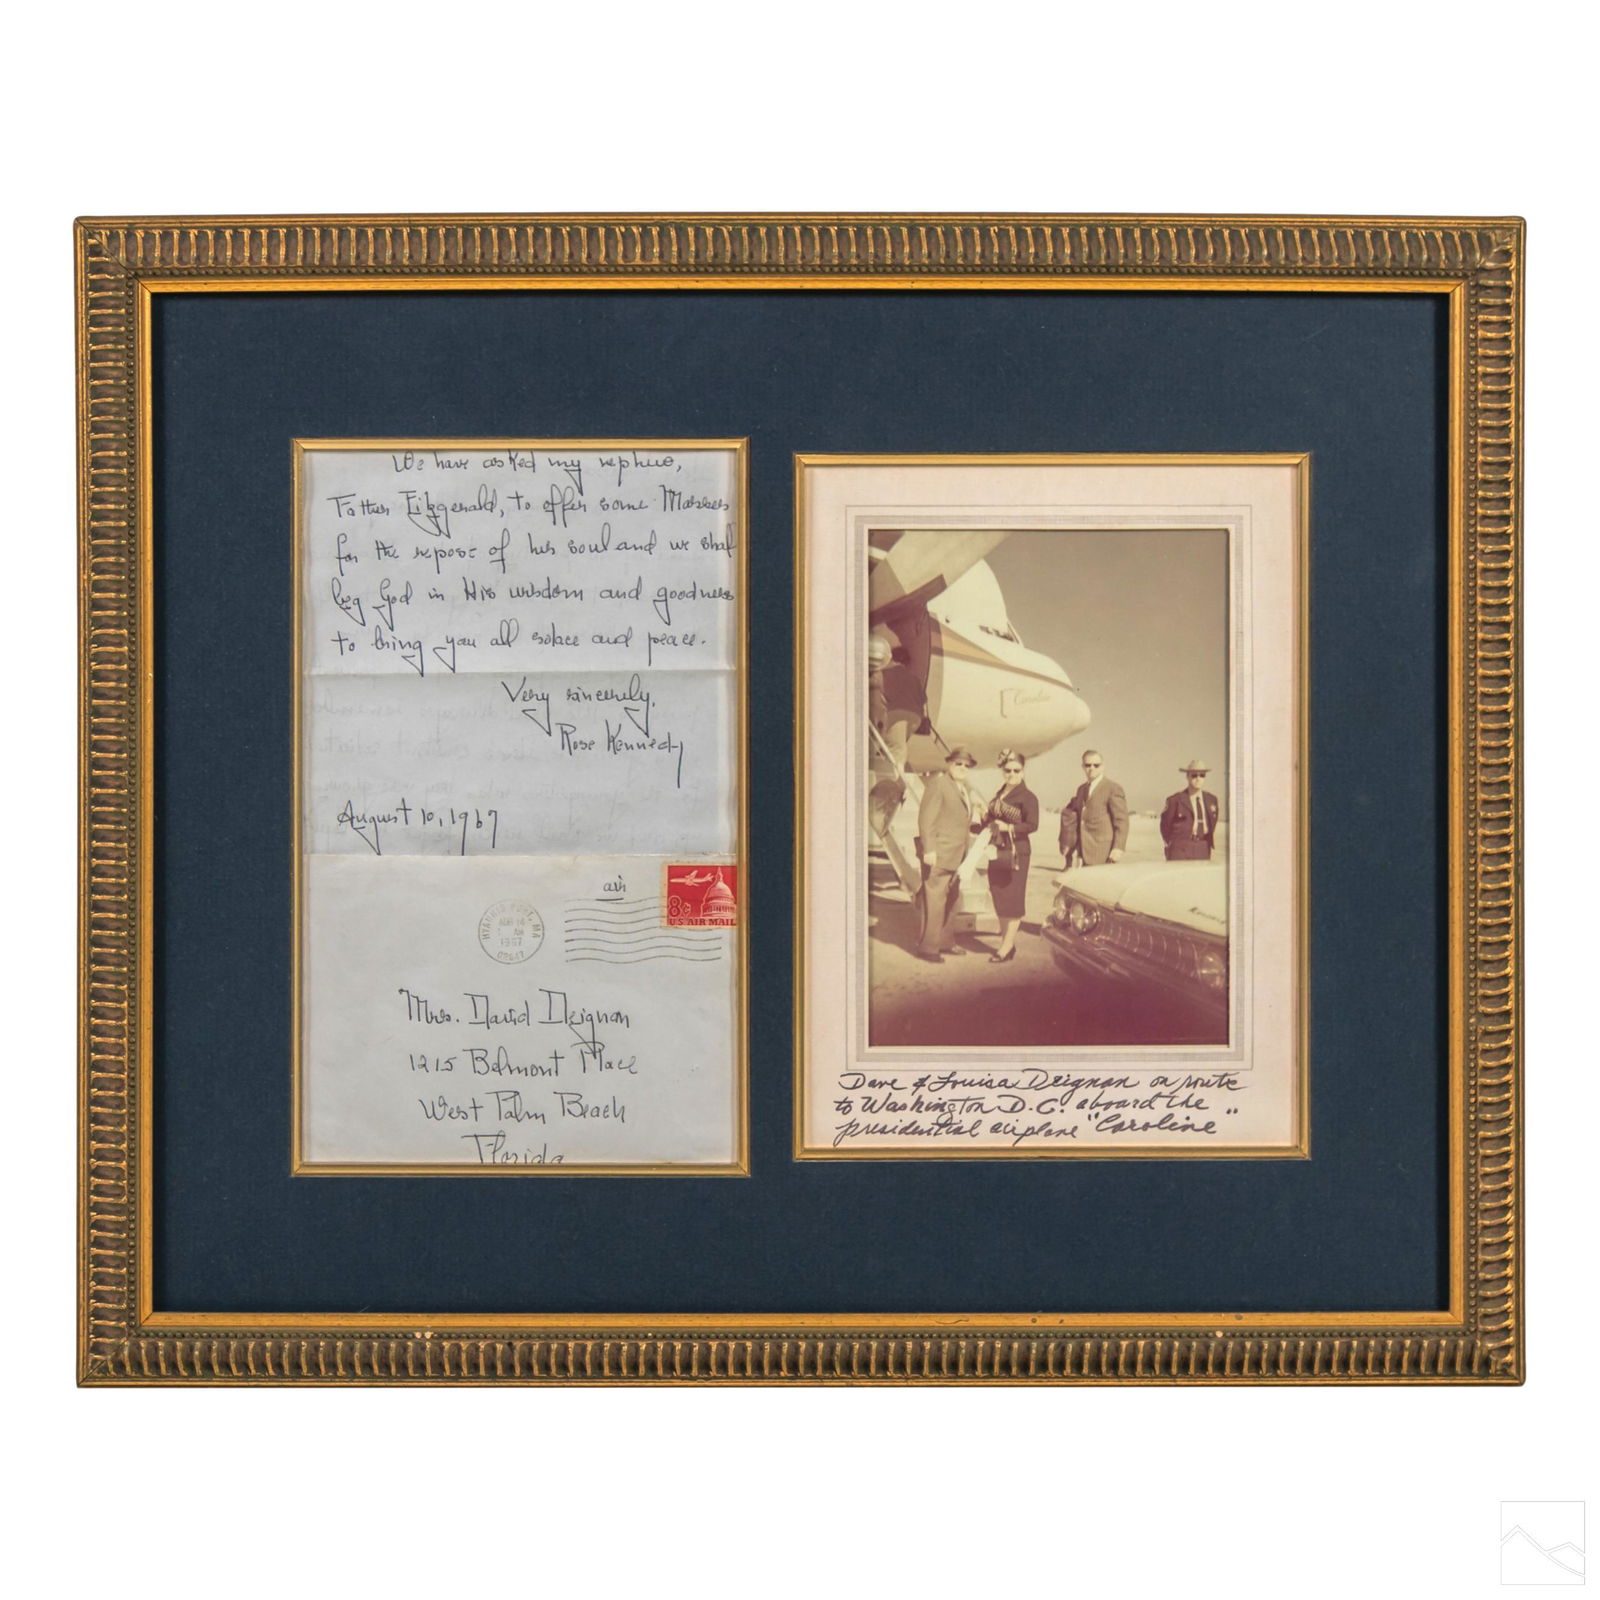 We have asked my nephew,
Father Fitzgerald, to offer some Masses
for the repose of his soul and we shal
beg God in His wisdom and goodness
to bring you all solace and peace.
Very sincerely,
Rose Kennedy
August 10, 1967
air
8¢
US AIR MAIL
HYANNIS PORT, MA
AUG 14
AM
1967
02647
Mrs. David Deignan
1215 Belmont Place
West Palm Beach
Florida
Caroline
Dave & Louisa Deignan on route
to Washington D.C. aboard the
presidential airplane "Caroline"